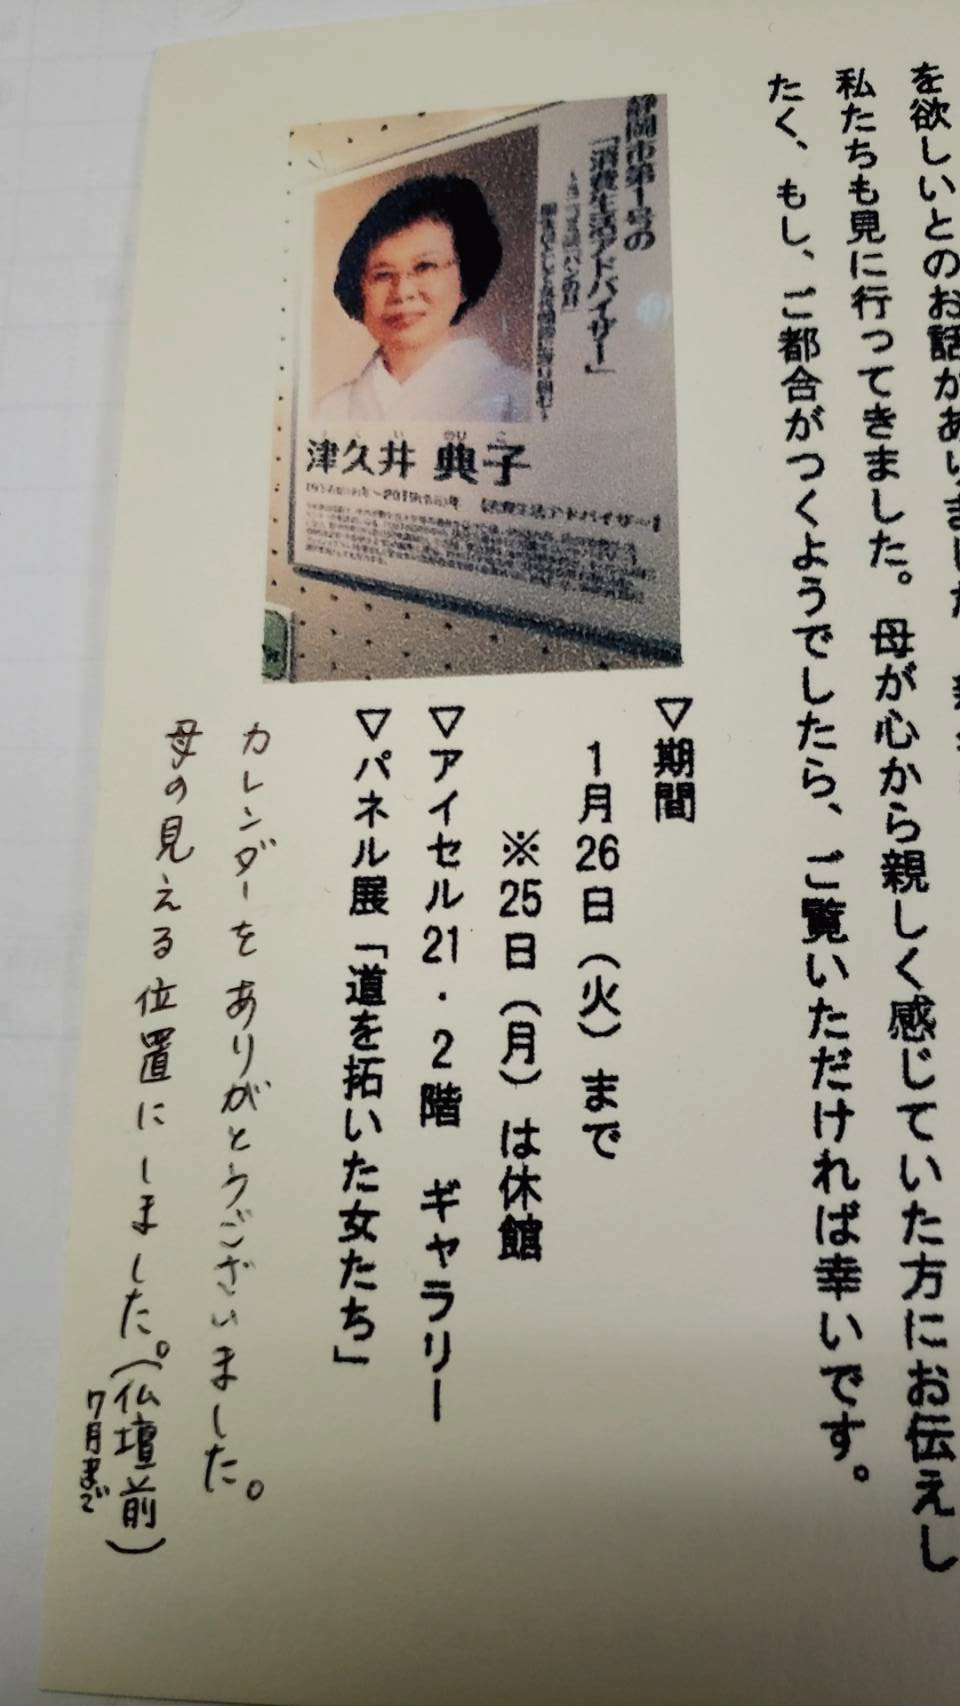 を欲しいとのお話があ
私たちも見に行ってきました。母が心から親しく感じていた方にお伝えし
たく、もし、ご都合がつくようでしたら、ご覧いただければ幸いです。
静岡市第1号の
「消費生活アドバイザー」
津久井 典子
【消費生活アドバイザー】
▽期間
1月26日(火)まで
※25日(月)は休館
▽アイセル21・2階 ギャラリー
▽パネル展「道を拓いた女たち」
カレンダーをありがとうございました。
母の見える位置にしました。(仏壇前)
7月まで